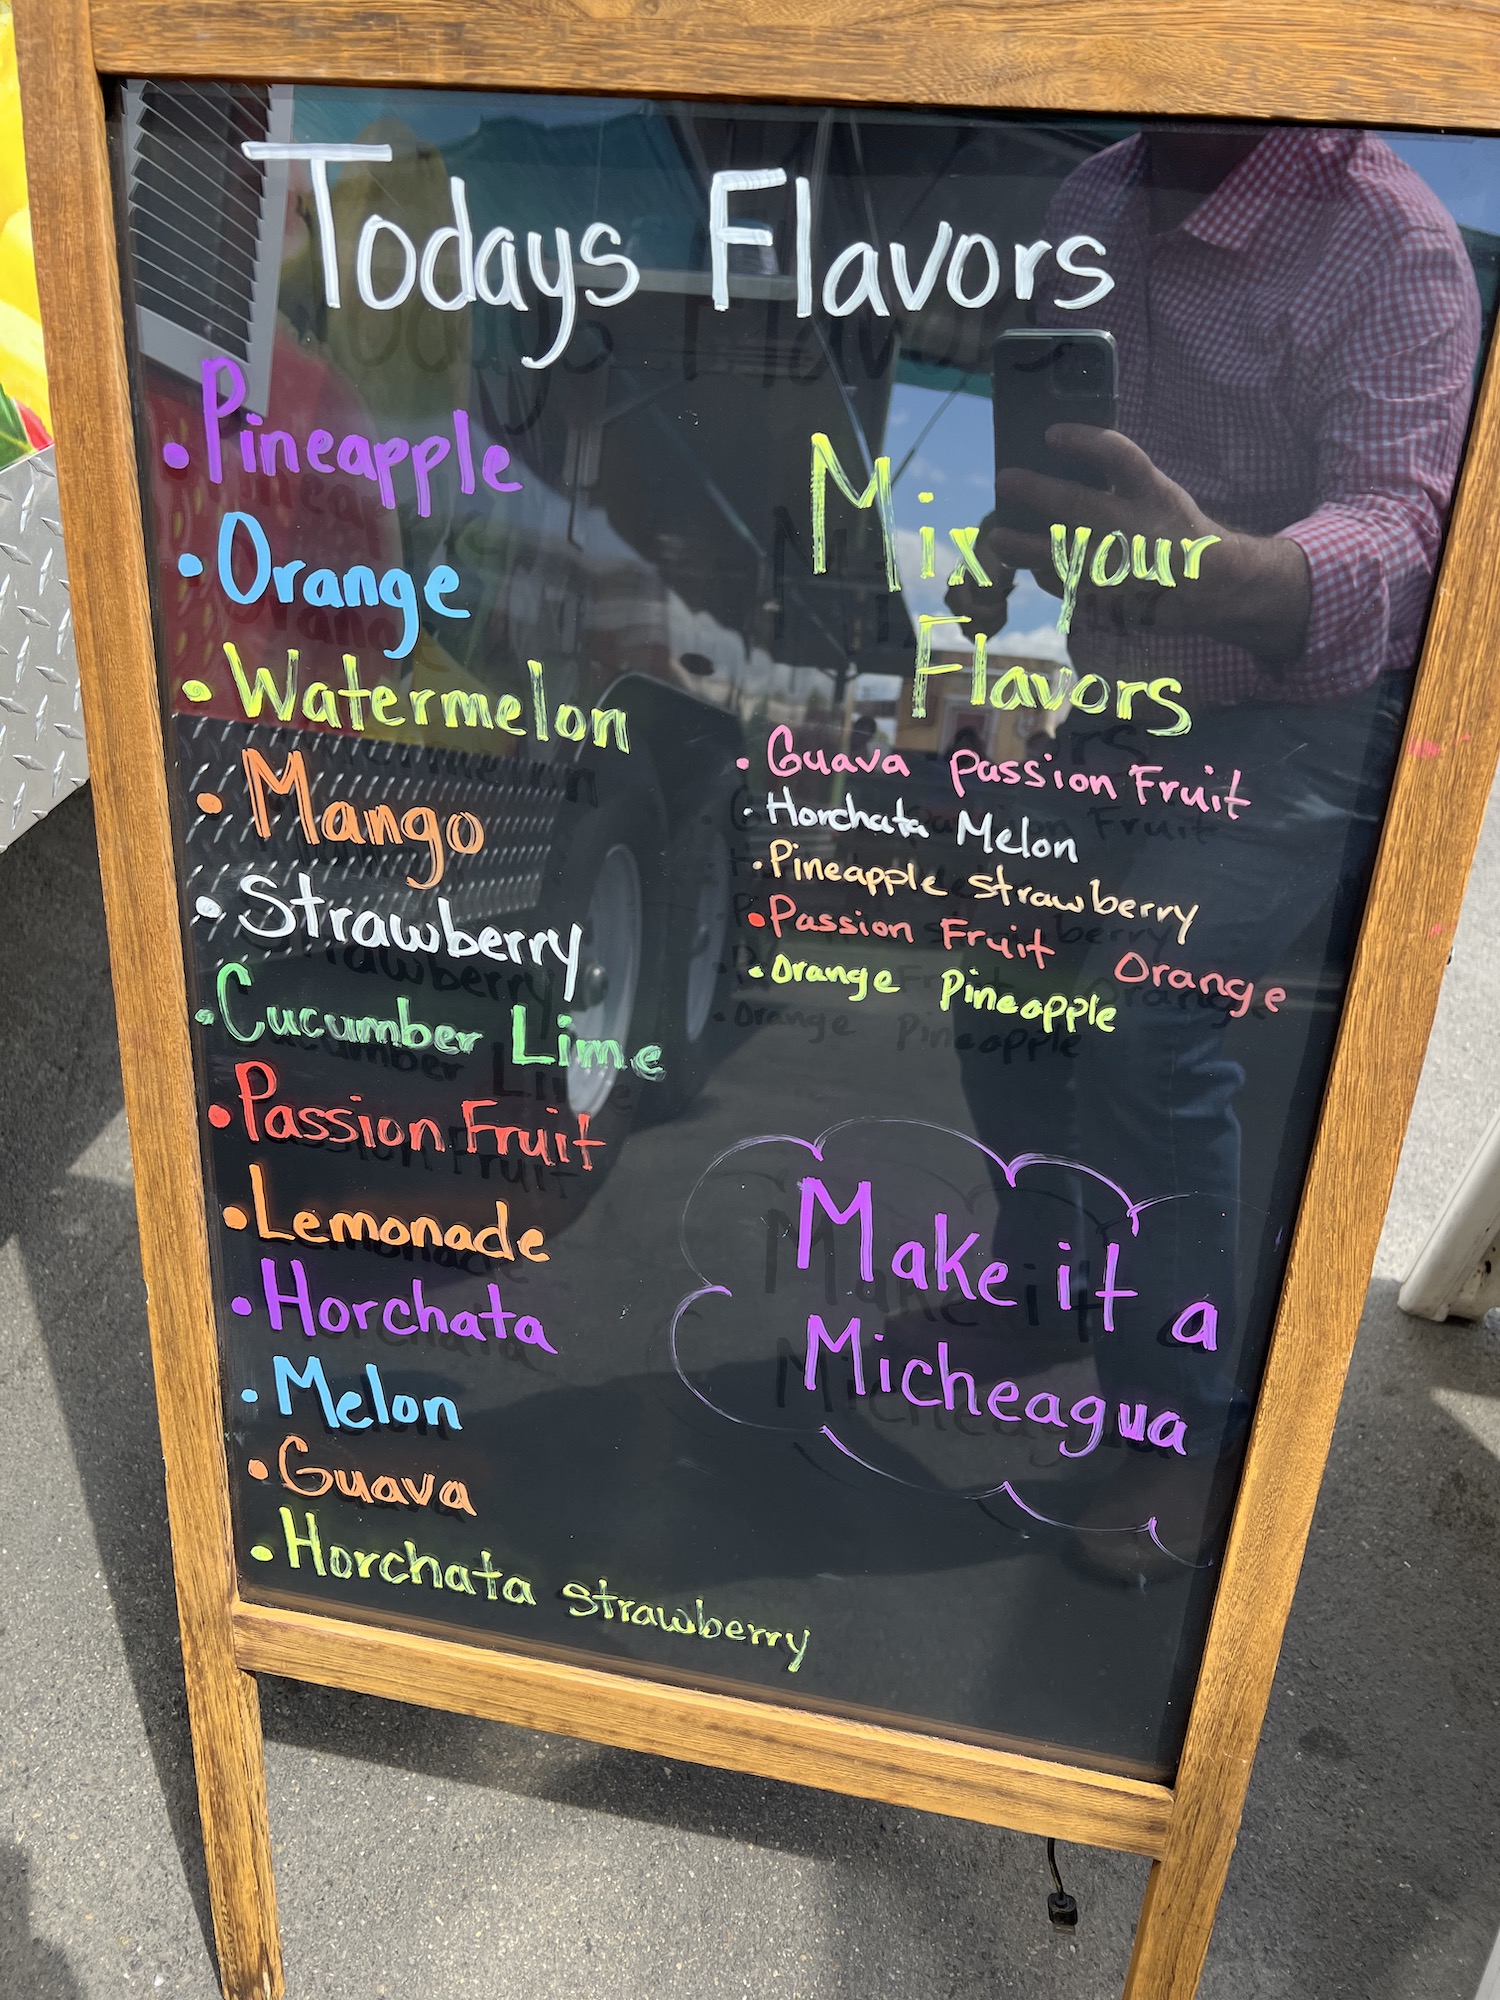 Todays Flavors
• Pineapple
• Orange
• Watermelon
• Mango
• Strawberry
• Cucumber Lime
• Passion Fruit
• Lemonade
• Horchata
• Melon
• Guava
• Horchata strawberry
Mix your
Flavors
• Guava passion Fruit
• Horchata Melon
• Pineapple strawberry
• Passion Fruit Orange
• Orange Pineapple
Make it a
Micheagua